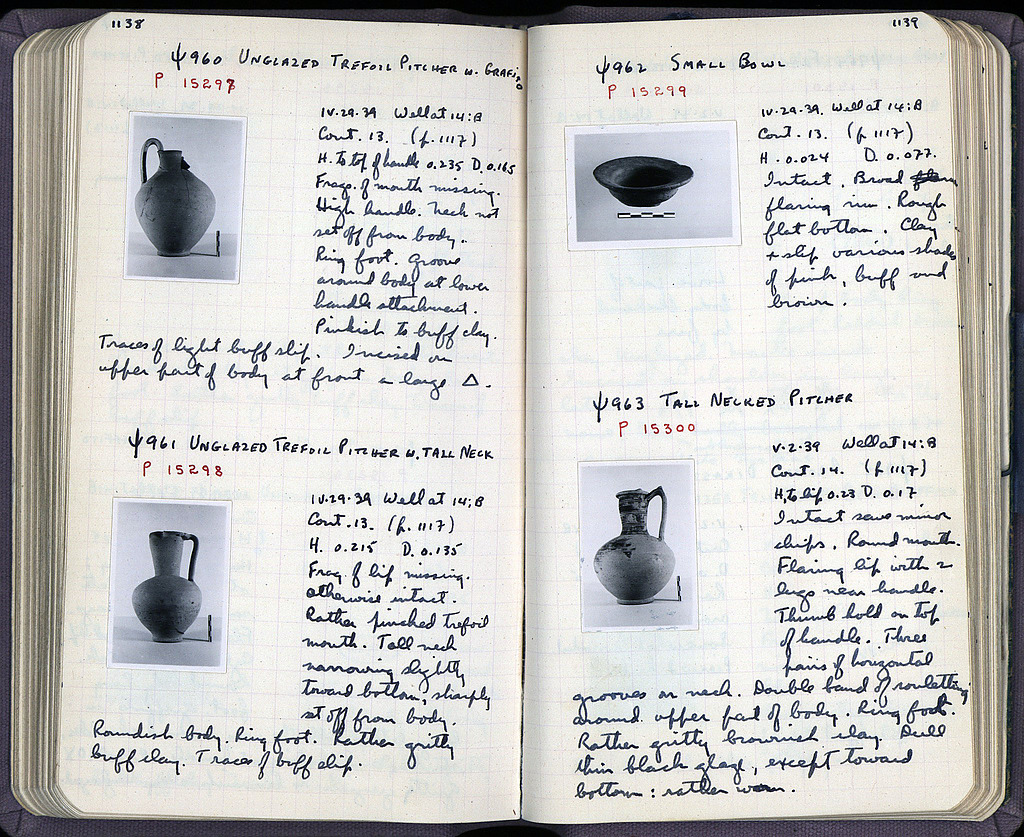 1138
ψ960 UNGLAZED TREFOIL PITCHER W. GRAFIO
P 15297
IV-29-39 Well at 14:B
Cont. 13. (p. 1117)
H. to top of handle 0.235 D. 0.165
Frags. of mouth missing.
High handle. Neck not
set off from body.
Ring foot. Groove
around body at lower
handle attachment.
Pinkish to buff clay.
Traces of light buff slip. Incised on
upper part of body at front a large Δ.
ψ961 UNGLAZED TREFOIL PITCHER W. TALL NECK
P 15298
IV-29-39 Well at 14:B
Cont. 13. (p. 1117)
H. 0.215 D. 0.135
Frag. of lip missing.
otherwise intact.
Rather pinched trefoil
mouth. Tall neck
narrowing slightly
toward bottom, sharply
set off from body.
Roundish body. Ring foot. Rather gritty
buff clay. Traces of buff slip.
1139
ψ962 SMALL BOWL
P 15299
IV-29-39. Well at 14:B
Cont. 13. (p. 1117)
H. 0.024 D. 0.077.
Intact. Broad
flaring rim. Rough
flat bottom. Clay
+ slip various shades
of pink, buff and
brown.
ψ963 TALL NECKED PITCHER
P 15300
V-2-39 Well at 14:B
Cont. 14. (p. 1117)
H. to lip 0.23 D. 0.17
Intact save minor
chips. Round mouth.
Flaring lip with 2
lugs near handle.
Thumb hold on top
of handle. Three
pairs of horizontal
grooves on neck. Double band of rouletting
around upper part of body. Ring foot.
Rather gritty brownish clay. Dull
thin black glaze, except toward
bottom: rather worn.